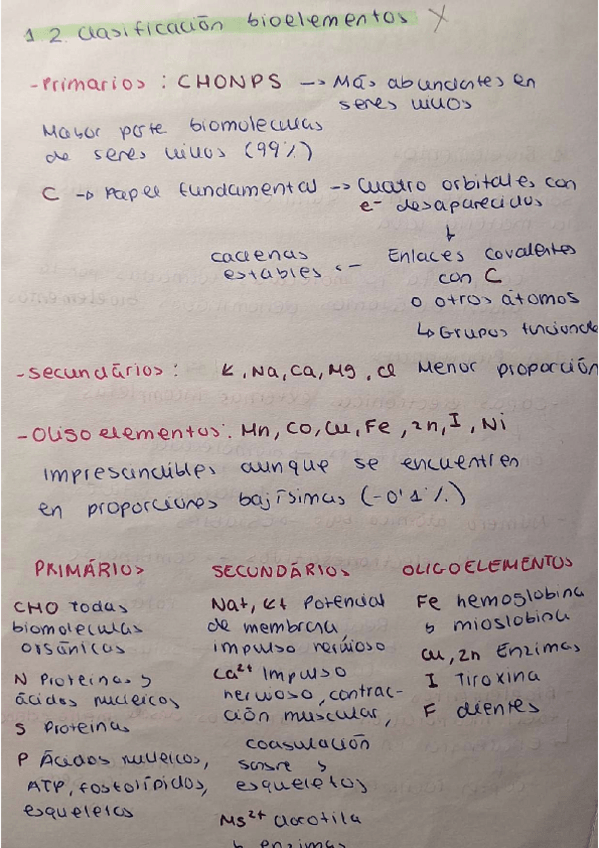 1.2. Clasificación bioelementos X
- Primarios : CHONPS → Más abundantes en
seres vivos
Mayor parte biomoleculas
de seres vivos (99%)
C → Papel fundamental → Cuatro orbitales con
e⁻ desaparecidos
↓
Enlaces covalentes
con C
o otros átomos
↳ Grupos funcionale
← cadenas
estables
- Secundários : K, Na, Ca, Mg, Cl Menor proporción
- Oligoelementos: Mn, Co, Cu, Fe, Zn, I, Ni
Impresandibles aunque se encuentren
en proporciones bajísimas (-0'1%)
PRIMÁRIOS
CHO todas
biomoleculas
orgánicas
N Proteinas y
ácidos nucleicos
S Proteinas
P Ácidos nucleicos,
ATP, fosfolípidos,
esqueletos
SECUNDÁRIOS
Na+, K+ Potencial
de membrana,
impulso nervioso
Ca²⁺ Impulso
nervioso, contrac-
ción muscular,
coagulación
sangre y
esqueletos
Mg²⁺ Clorofila
y enzimas
OLIGOELEMENTOS
Fe hemoglobina
y mioglobina
Cu, Zn Enzimas
I Tiroxina
F dientes